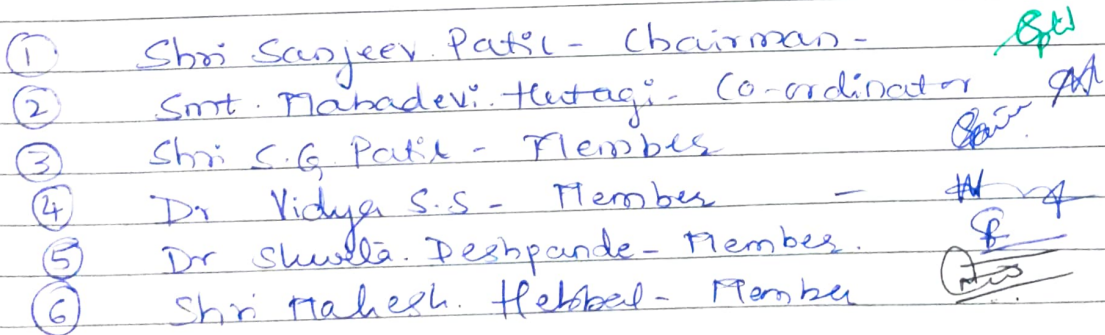 ① Shri Sanjeev. Patil - Chairman -
② Smt. Mahadevi. Hutagi - Co-ordinator
③ Shri S.G. Patil - Member
④ Dr Vidya S.S - Member -
⑤ Dr Deshpande - Member.
⑥ Shri Mahesh. Hebbal - Member